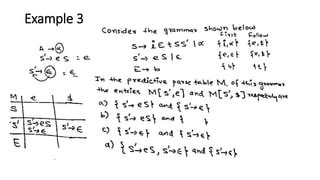 Example 3
Consider the grammar shown below
First Follow
S → i E t S S' | α {i,α} {e,$}
S' → e S | ε {e,ε} {e,$}
E → b {b} {t}
A → α
S' → e S = e
S' → ε = ε
In the predictive parse table M, of this grammar
the entries M[S',e] and M[S',$] respectively are
a) {S' → eS} and {S' → ε}
b) {S' → eS} and { }
c) {S' → ε} and {S' → ε}
d) {S' → eS, S' → ε} and {S' → ε}
M e $
S
S' S' → eS S' → ε
S' → ε
E